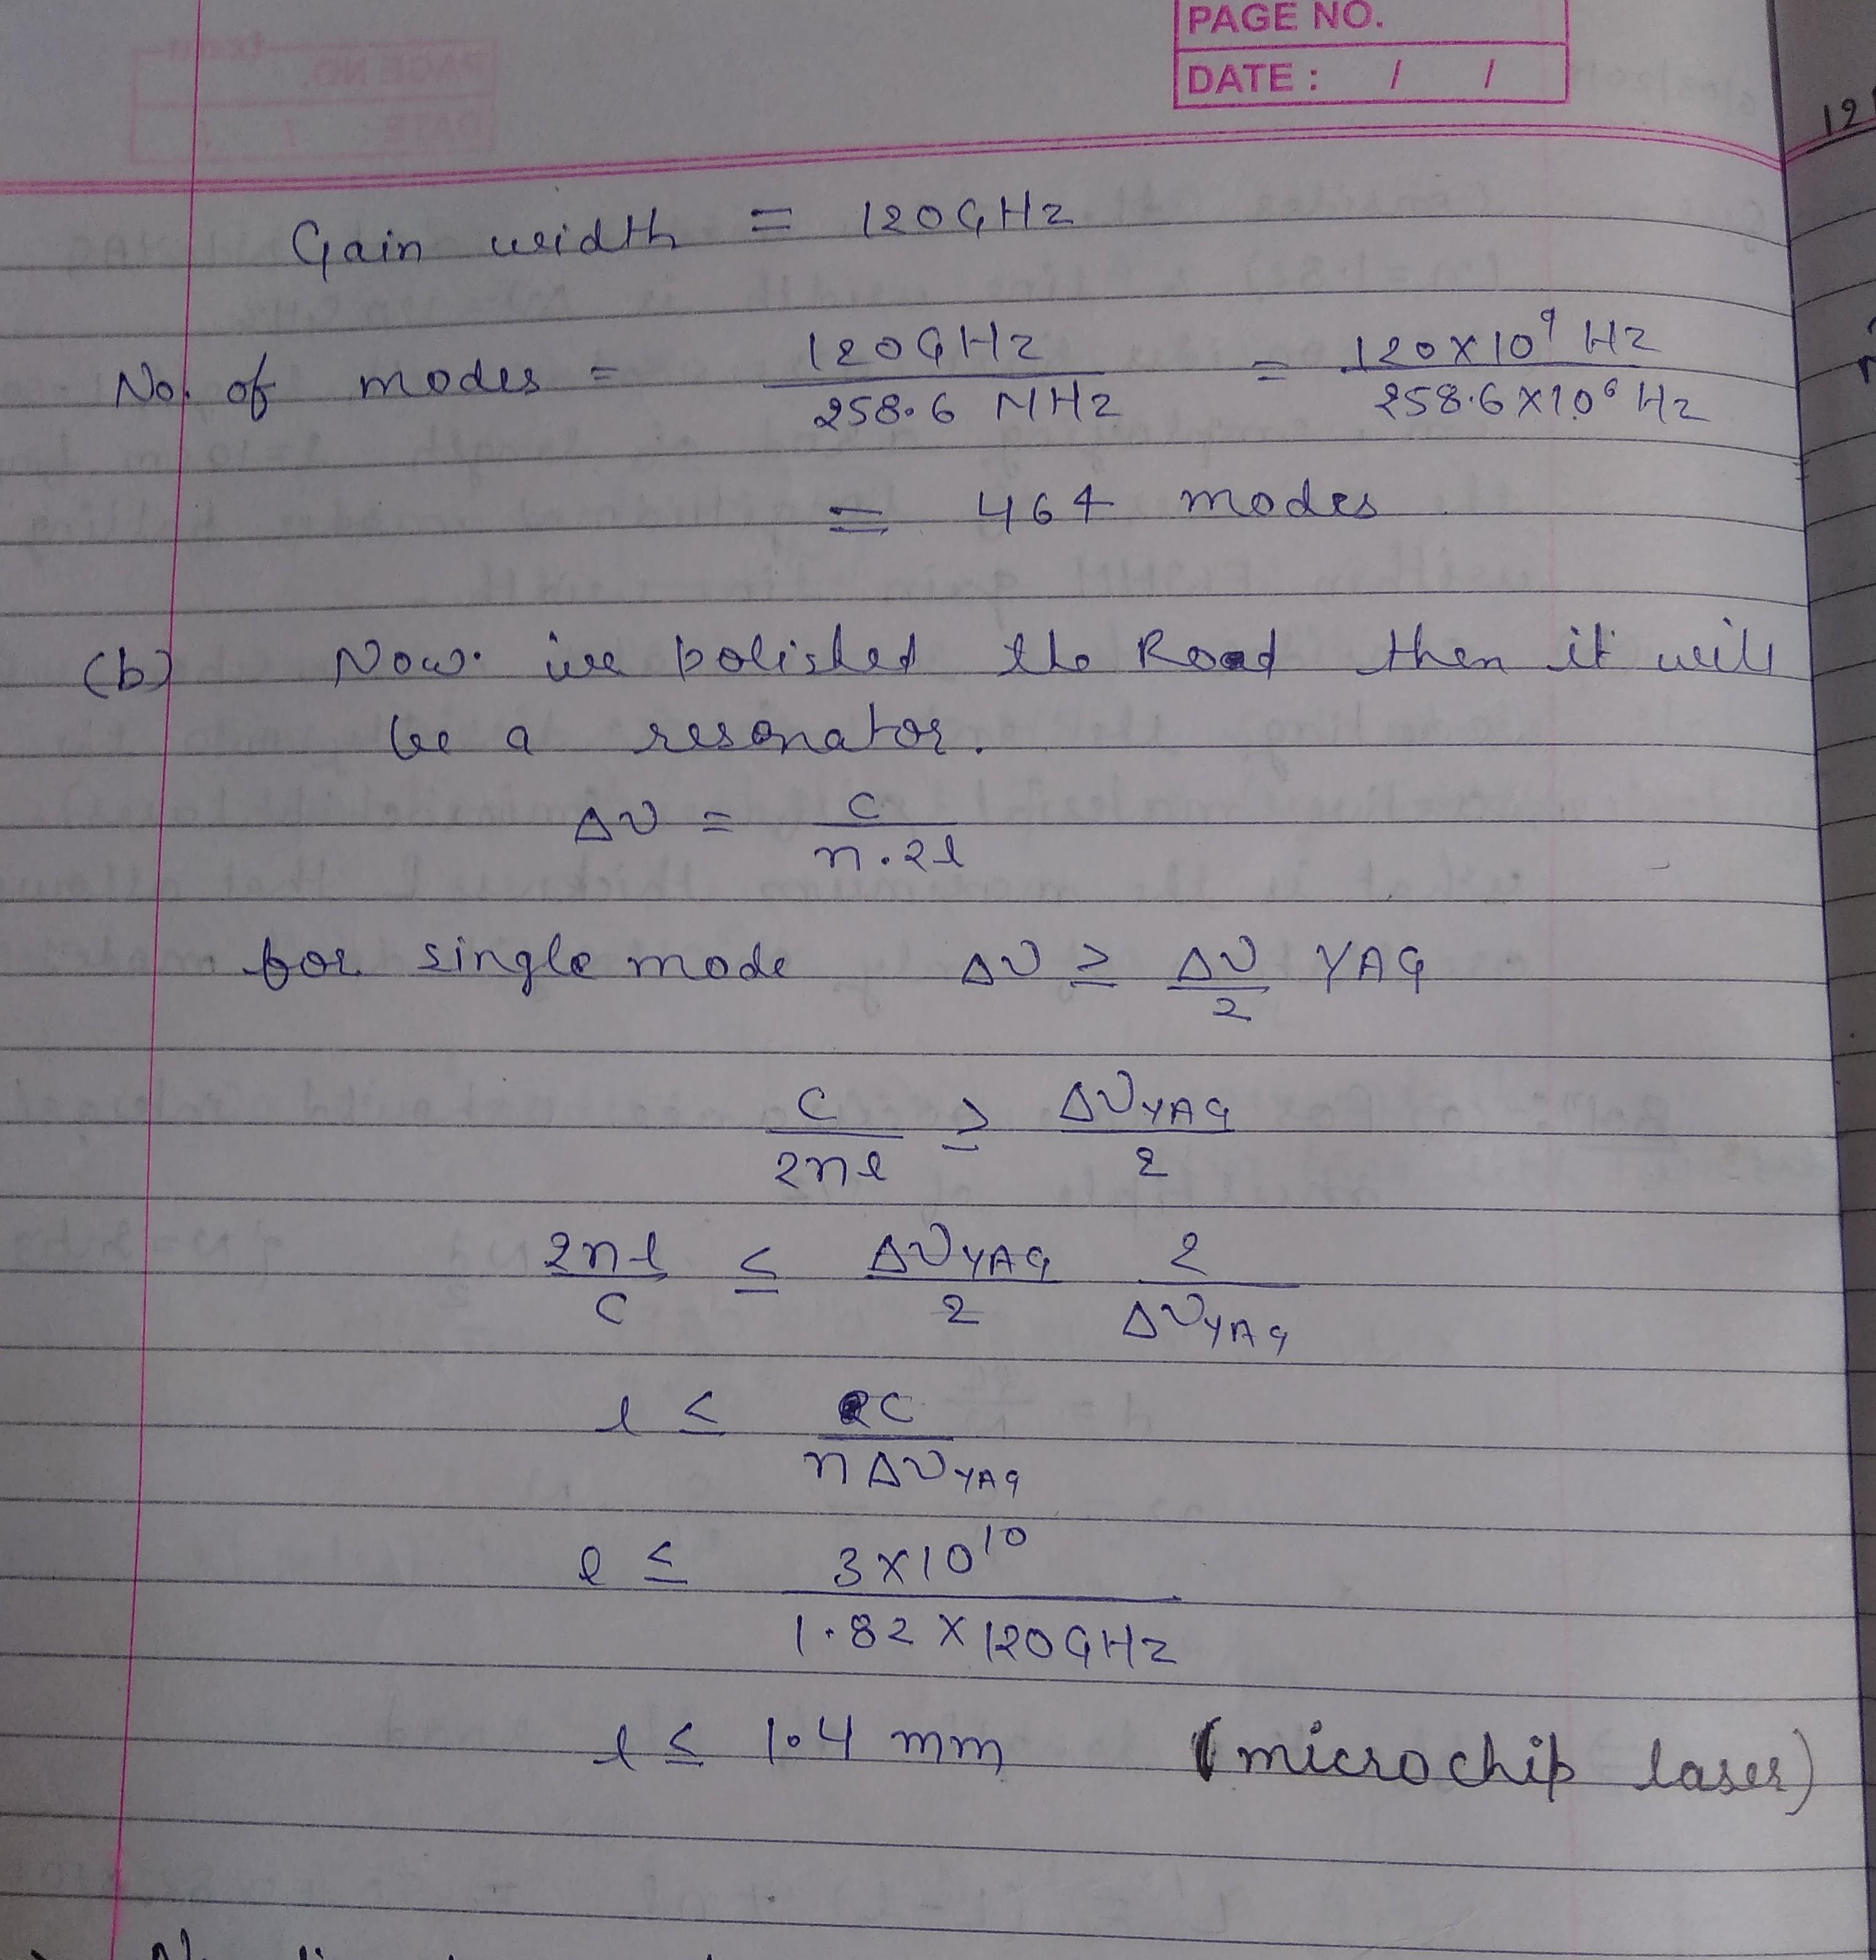 PAGE NO.
DATE : / /
Gain width = 120GHz
No. of modes = 120GHz / 258.6 MHz = 120×10⁹ Hz / 258.6×10⁶ Hz
= 464 modes
(b) Now we polished the Road then it will
be a resonator.
Δν = c / n.2l
for single mode Δν ≥ Δν/2 YAG
c / 2nl ≥ Δν_YAG / 2
2nl / c ≤ Δν_YAG / 2 2 / Δν_YAG
l ≤ c / nΔν_YAG
l ≤ 3×10¹⁰ / 1.82 × 120GHz
l ≤ 1.4 mm (microchip laser)